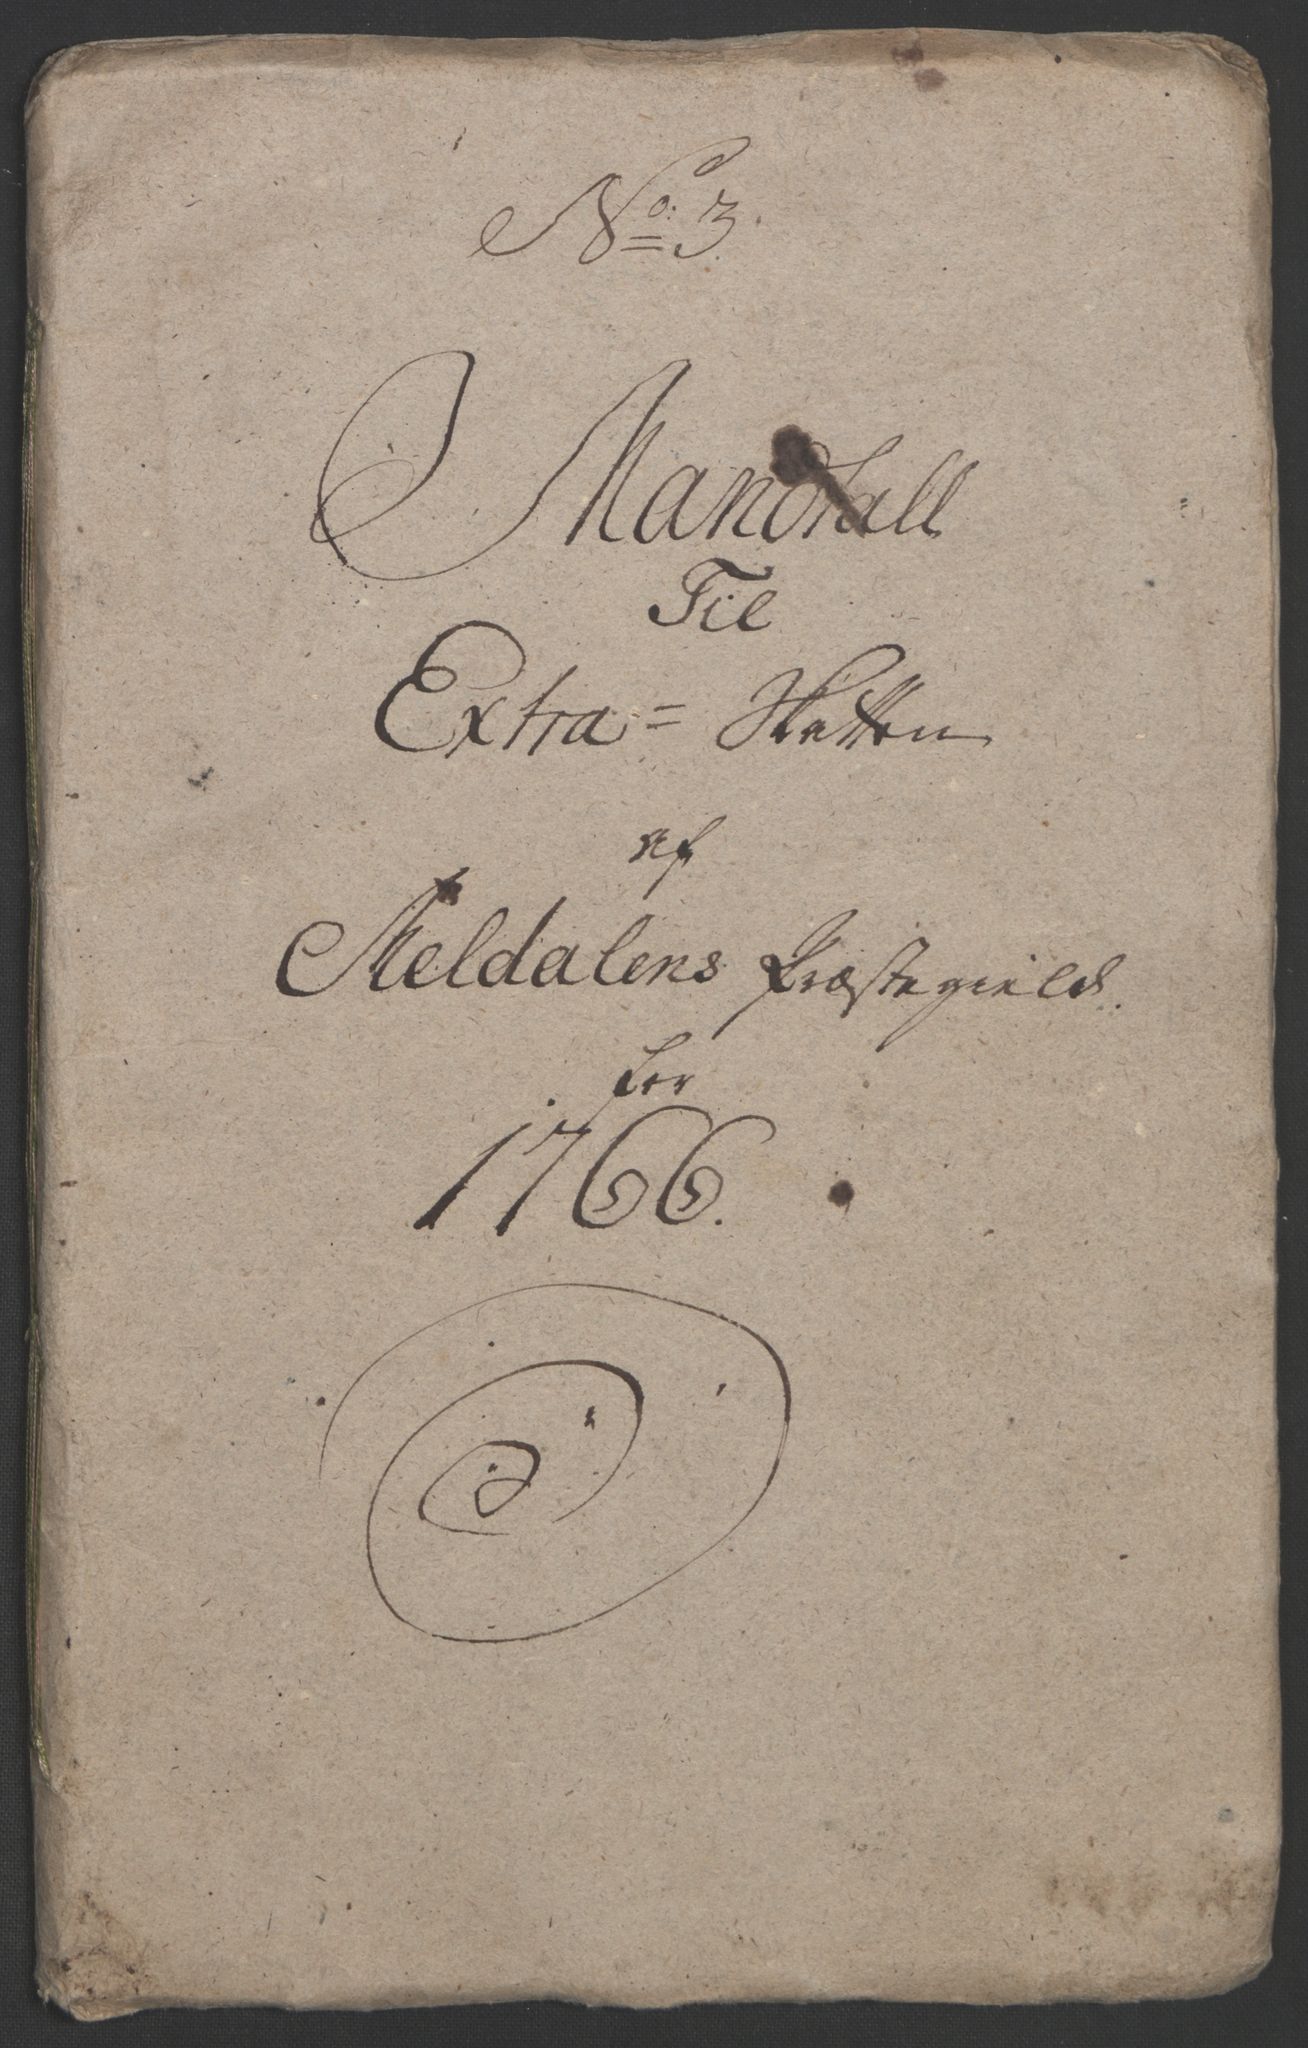 No: 3.
Mandtall
Til
Extra= Skatten
af
Meldalens Præstegield.
for
1766.